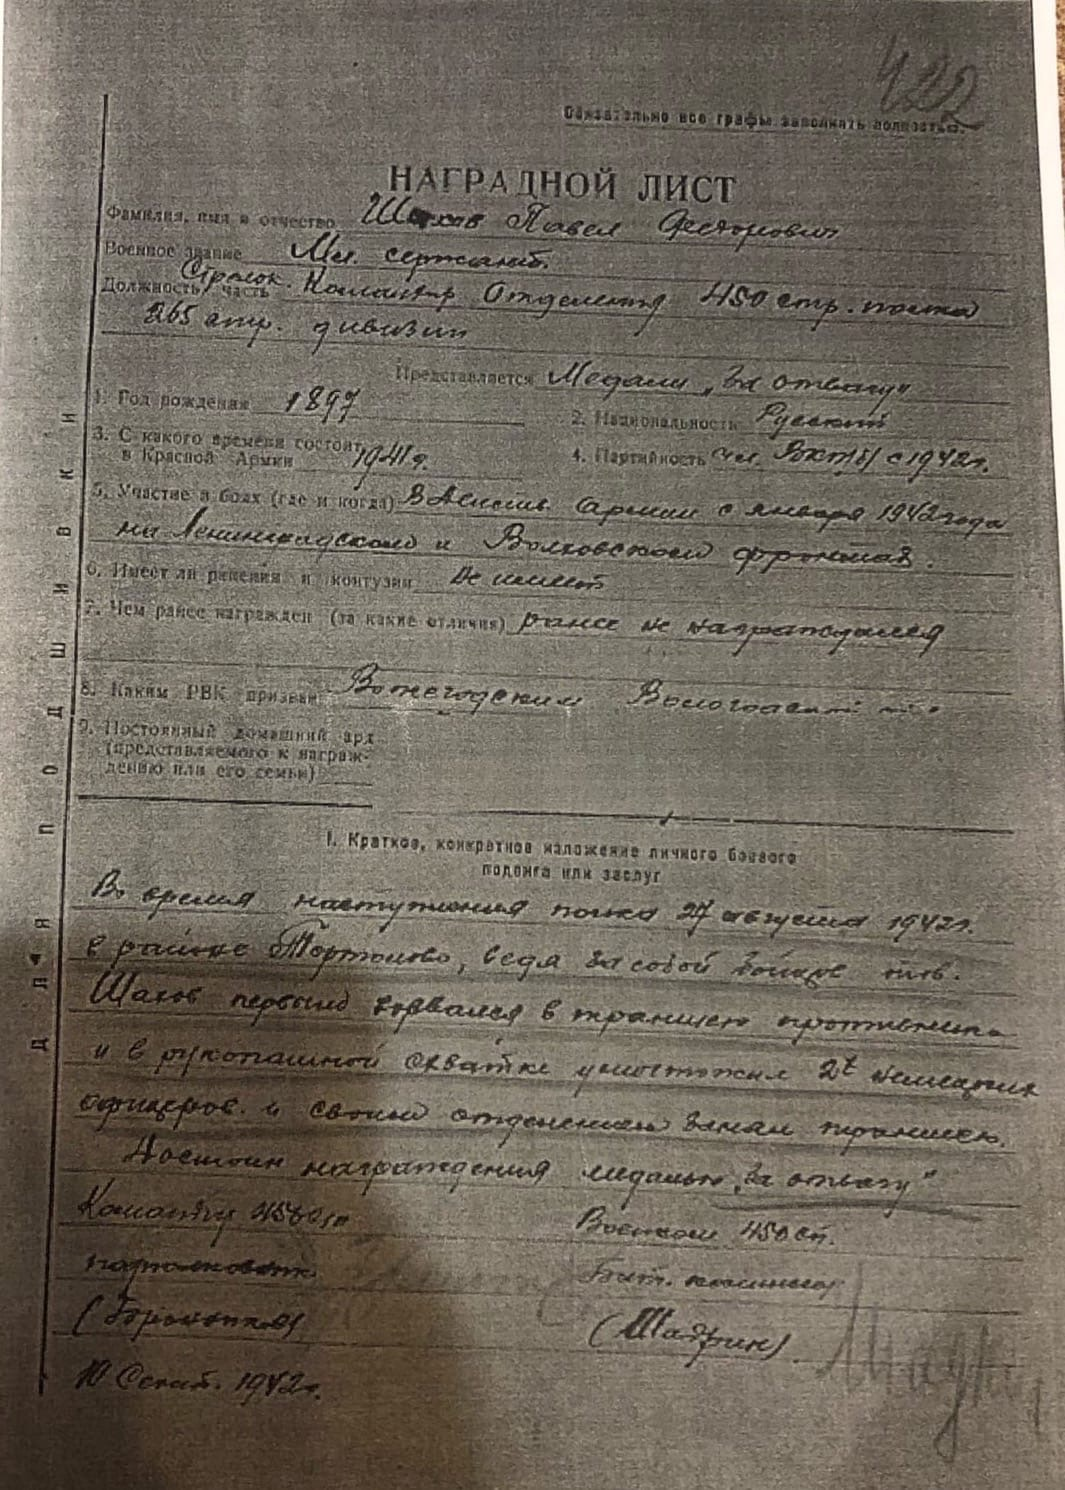 422
Обязательно все графы заполнять полностью.
НАГРАДНОЙ ЛИСТ
Фамилия, имя и отчество Шахов Павел Федорович
Военное звание Мл. сержант.
Должность, часть Стрелок. Командир Отделения 450 стр. полка
265 стр. дивизии
Представляется Медали „За отвагу"
1. Год рождения 1897
2. Национальность Русский
3. С какого времени состоит
в Красной Армии 1941г.
4. Партийность чл. ВКП(б) с 1942г.
5. Участие в боях (где и когда) В Действ. Армии с января 1942 года
на Ленинградском и Волховском фронтах.
6. Имеет ли ранения и контузии Не имеет
7. Чем ранее награжден (за какие отличия) ранее не награждался
8. Каким РВК призван Вожегодским Вологодской
9. Постоянный домашний адр.
(представляемого к награж-
дению или его семьи)
ДЛЯ ПОДШИВКИ
1. Краткое, конкретное изложение личного боевого
подвига или заслуг
Во время наступления полка 27 августа 1942г.
в районе Тортолово, ведя за собой бойцов тов.
Шахов первый ворвался в траншею противника
и в рукопашной схватке уничтожил 2х немецких
офицеров. и своим отделением занял траншею.
Достоин награждения медалью „За отвагу"
Командир 450 сп
Военком 450 сп.
подполковник
Бат. комиссар
(Шадрин)
10 Сент. 1942г.